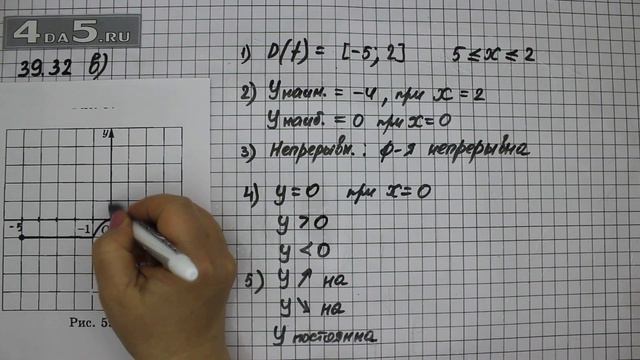 4DA5.RU
39.32 в)
1) D(f) = [-5; 2] 5 ≤ x ≤ 2
2) Yнаим. = -4, при x = 2
Yнаиб. = 0 при x = 0
3) Непрерывн.: ф-я непрерывна
4) y = 0 при x = 0
y > 0
y < 0
5) y ↗ на
y ↘ на
y постоянна
y
-5
-1
Рис. 5